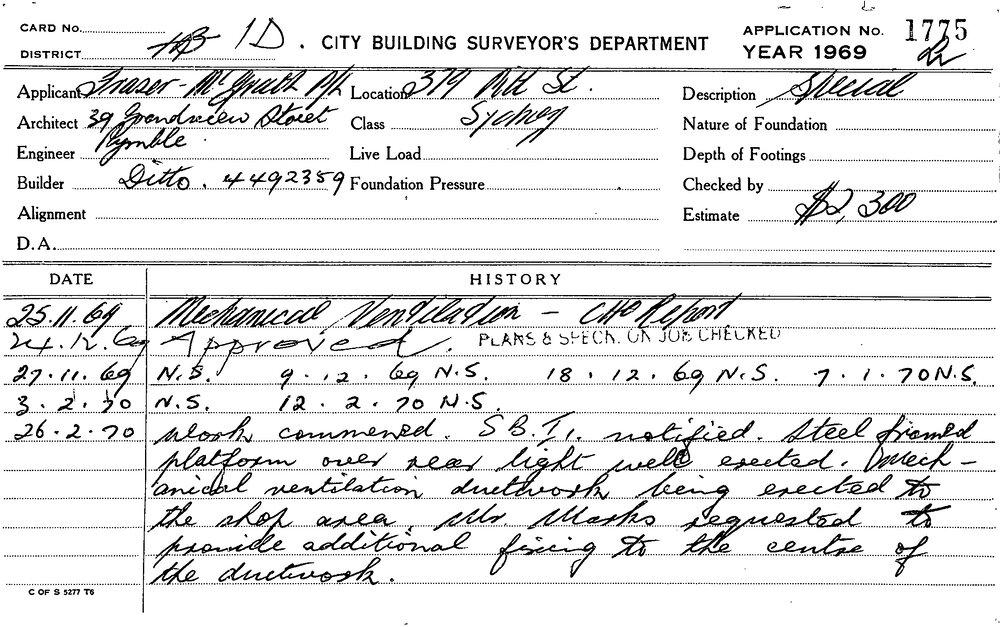 CARD No.
DISTRICT HB 1D. CITY BUILDING SURVEYOR'S DEPARTMENT
APPLICATION No. 1775
YEAR 1969
Applicant Fraser-McGrath P/L Location 379 Pitt St. Description Special
Architect 39 Grandview Street Class Sydney Nature of Foundation
Pymble
Engineer Live Load Depth of Footings
Builder Ditto. 4492359 Foundation Pressure Checked by
Alignment Estimate $2,300
D.A.
DATE HISTORY
25.11.69 Mechanical Ventilation - CHO Report
24.12.69 Approved. PLANS & SPECN. ON JOB CHECKED
27.11.69 N.S. 9.12.69 N.S. 18.12.69 N.S. 7.1.70 N.S.
3.2.70 N.S. 12.2.70 N.S.
26.2.70 Work commenced. S.B.I. notified. Steel framed
platform over rear light well erected. Mech-
anical ventilation ductwork being erected to
the shop area. Mr. Marks requested to
provide additional fixing to the centre of
the ductwork.
C OF S 5277 T6